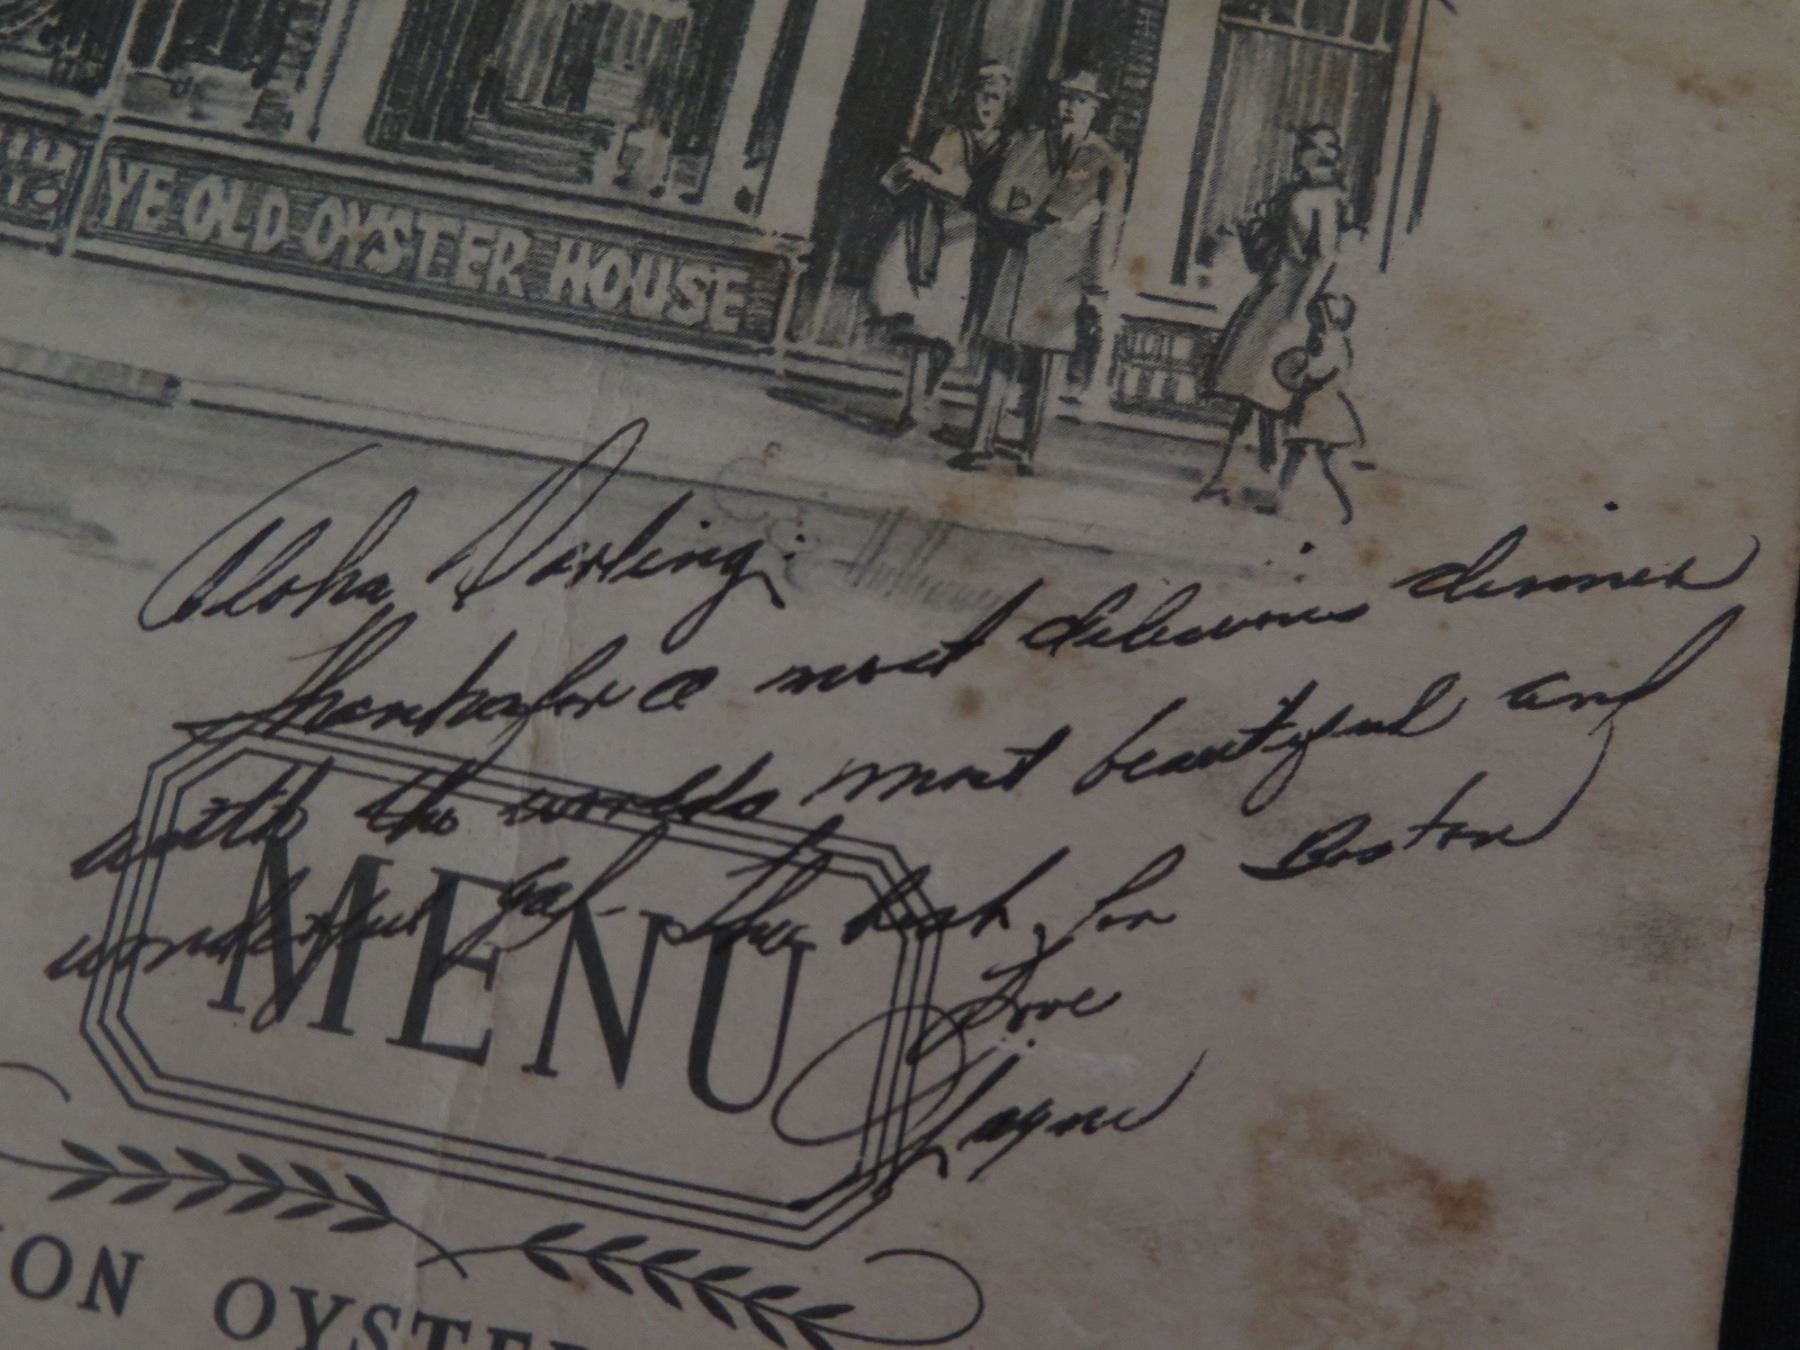 YE OLD OYSTER HOUSE
Aloha Darling:
Thanks for a most delicious dinner
with the worlds most beautiful and
wonderful gal. Three for Boston
Love
MENU
ION OYSTE